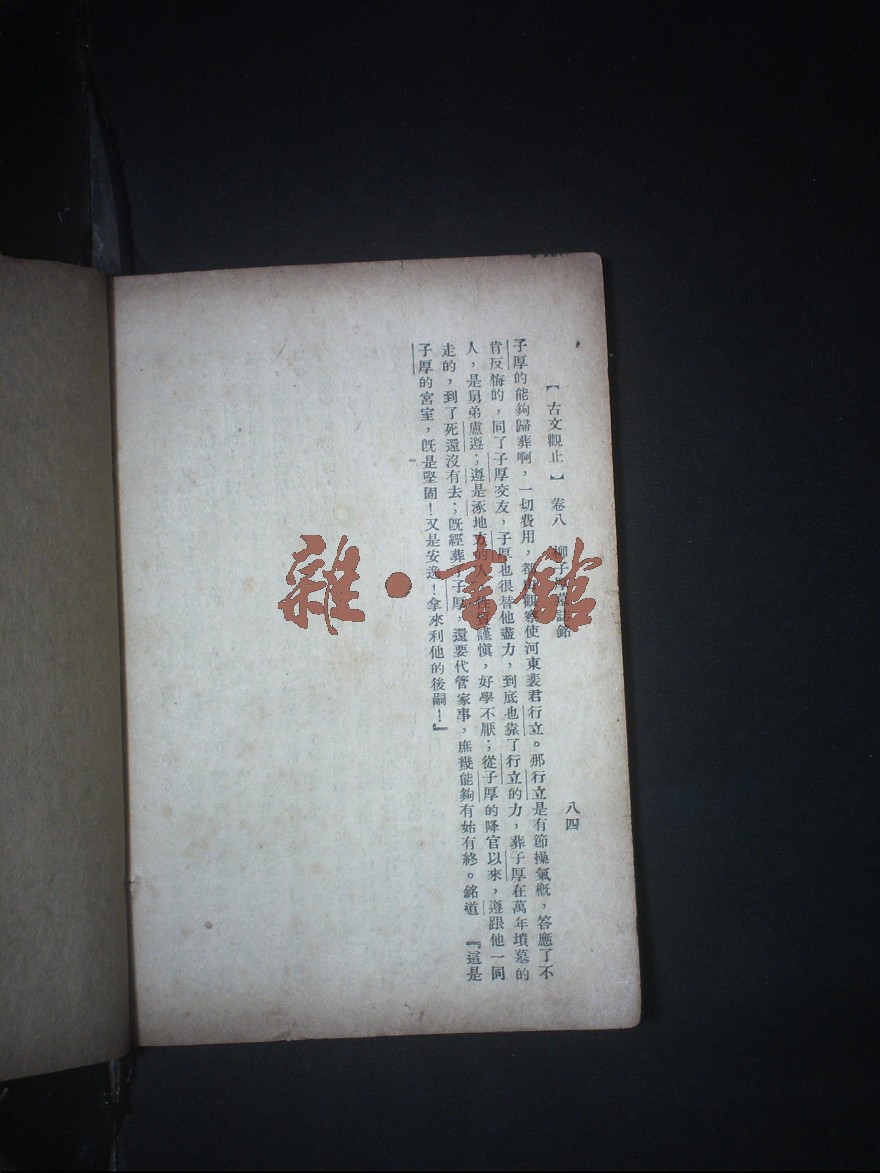 【古文觀止】 卷八 柳子厚墓誌銘 八四
子厚的能夠歸葬啊，一切費用，都觀察使河東裴君行立。那行立是有節操氣概，答應了不
肯反悔的，同了子厚交友，子厚也很替他盡力，到底也靠了行立的力，葬子厚在萬年墳墓的
人，是舅弟盧遵；遵是涿地方的人，性質謹慎，好學不厭；從子厚的降官以來，遵跟他一同
走的，到了死還沒有去；既經葬了子厚，還要代管家事，庶幾能夠有始有終。銘道 『這是
子厚的宮室，既是堅固！又是安逸！拿來利他的後嗣！』
雜·書館